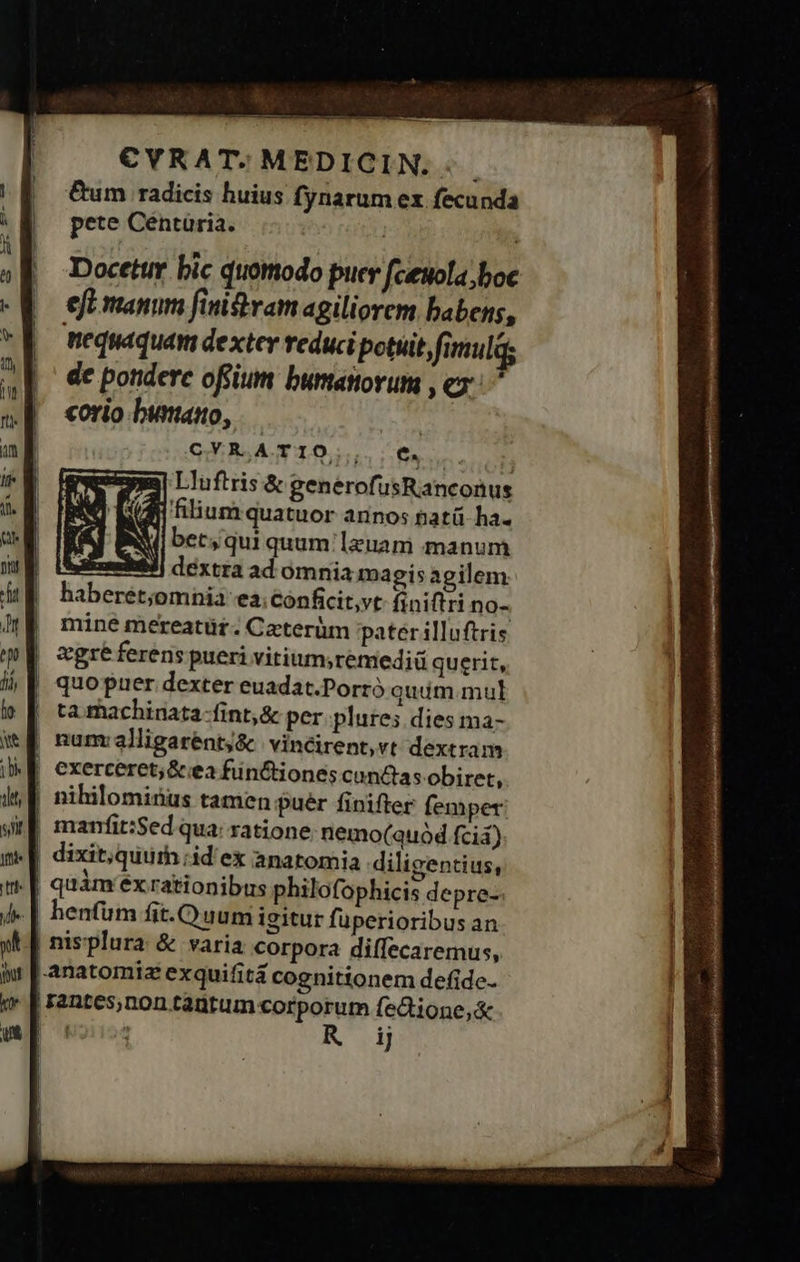 CVRAT. MEDICIN.
ctum radicis huius ſynarum ex ſecunda
pete Centuria.
Docetur hic quomodo puer ſcæuola, hoc
eſt manum ſiniſtram agiliorem habens,
nequaquam dexter reduci potuit, ſimulq;
de pondere oſſium humanorum, &
corio humano,
CVRATIO C.
ILluſtris & generoſus Ranconus
filium quatuor annos natū ha-
bet, qui quum læuam manum
dextra ad omnia magis agilem
haberet, omnia ea, conficit, vt ſiniſtri no-
mine mereatur. Cæterùm pater illuſtris
ægre ferens pueri vitium, remediū querit,
quo puer dexter euadat. Porrò quùm mul
ta machinata ſint, & per plures dies ma-
num alligarent, & vincirent, vt dextram
exerceret, & ea functiones cunctas obiret,
nihilominus tamen puer ſiniſter ſemper
manſit: Sed qua ratione nemo (quòd ſciā)
dixit, quum id ex anatomia diligentius,
quàm ex rationibus philoſophicis depre-
henſum ſit. Quum igitur ſuperioribus an
nis plura & varia corpora diſſecaremus,
anatomiæ exquiſitā cognitionem deſide-
rantes, non tantum corporum ſectione, &
R ij